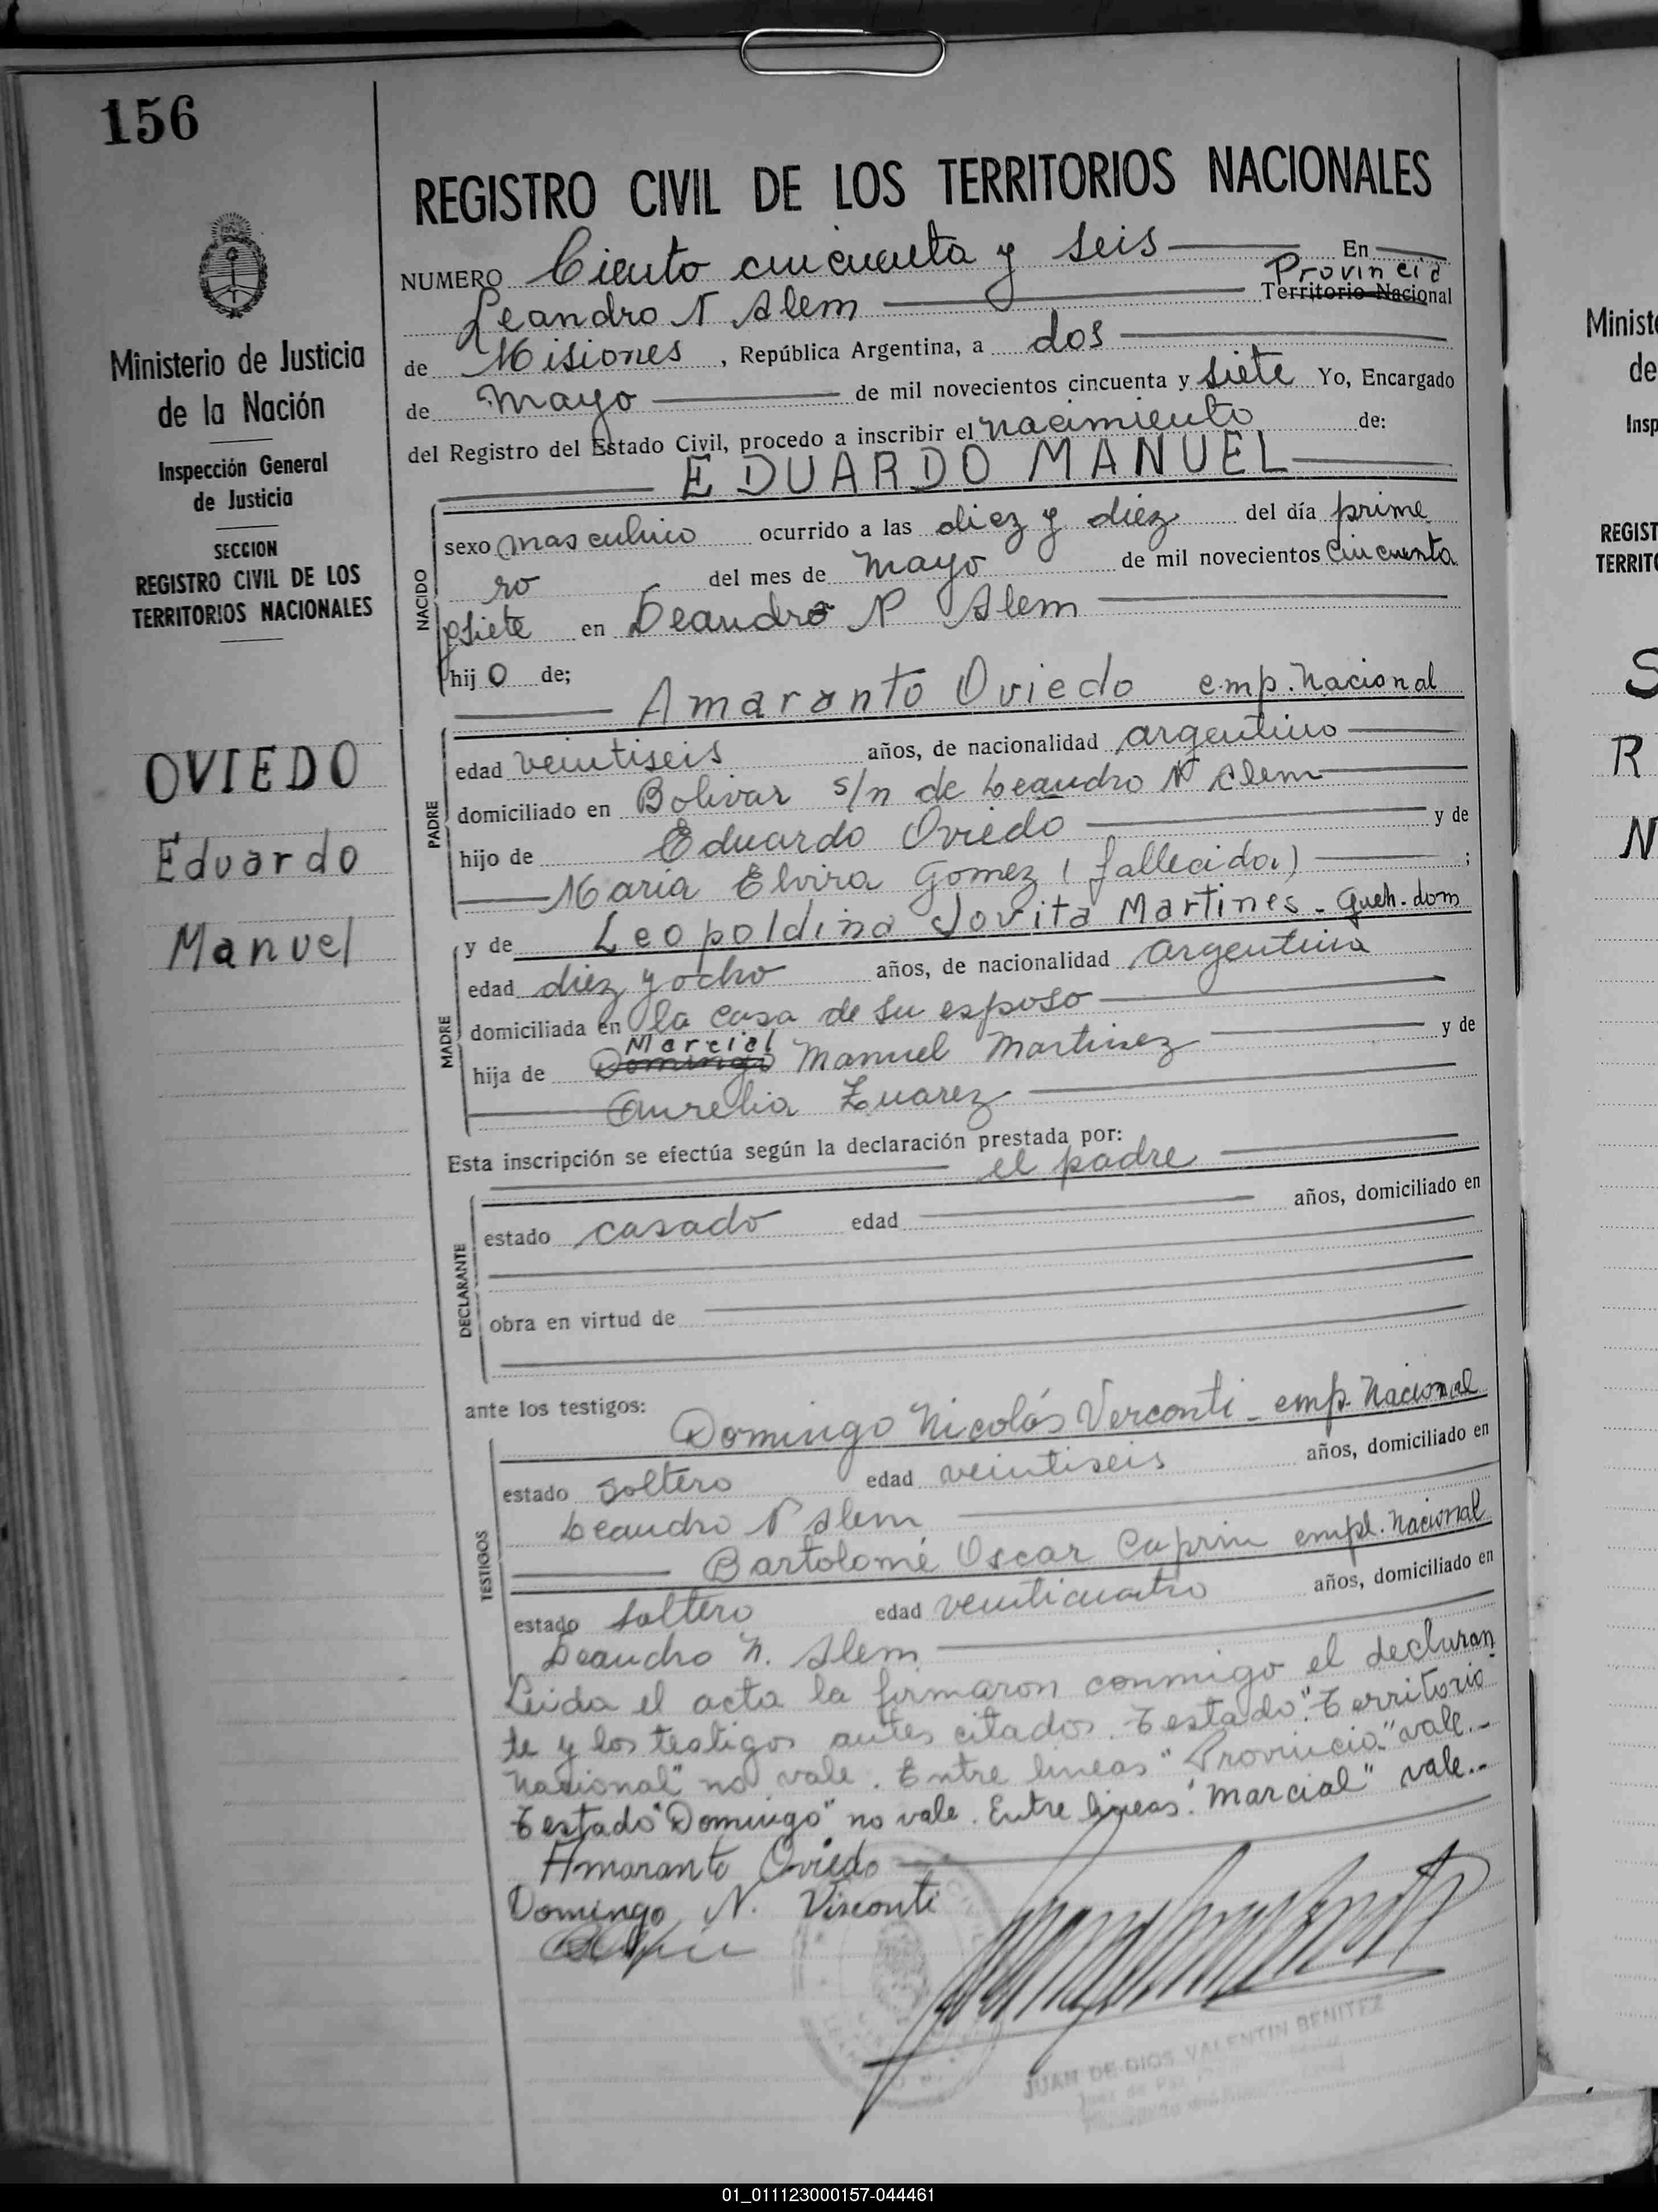 156
Ministerio de Justicia
de la Nación
Inspección General
de Justicia
SECCION
REGISTRO CIVIL DE LOS
TERRITORIOS NACIONALES
OVIEDO
Eduardo
Manuel
REGISTRO CIVIL DE LOS TERRITORIOS NACIONALES
NUMERO Ciento cincuenta y seis En
Provincia
Leandro N Alem Territorio Nacional
de Misiones, República Argentina, a dos
de Mayo de mil novecientos cincuenta y siete Yo, Encargado
del Registro del Estado Civil, procedo a inscribir el nacimiento de:
EDUARDO MANUEL
NACIDO
sexo masculino ocurrido a las diez y diez del día prime
ro del mes de mayo de mil novecientos cincuenta
y siete en Leandro N Alem
hijo de;
Amaranto Oviedo emp. Nacional
PADRE
edad veintiseis años, de nacionalidad argentino
domiciliado en Bolivar s/n de Leandro N Alem
hijo de Eduardo Oviedo y de
Maria Elvira Gomez (fallecidos) ;
MADRE
y de Leopoldina Jovita Martines - Queh. dom
edad diez y ocho años, de nacionalidad argentina
domiciliada en la casa de su esposo
Marcial
hija de Domingo Manuel Martinez y de
Aurelia Zuarez
Esta inscripción se efectúa según la declaración prestada por:
el padre
DECLARANTE
estado casado edad años, domiciliado en
obra en virtud de
ante los testigos:
TESTIGOS
Domingo Nicolás Verconti - emp. Nacional
estado soltero edad veintiseis años, domiciliado en
Leandro N Alem
Bartolomé Oscar Caprin empl. Nacional
estado soltero edad veinticuatro años, domiciliado en
Leandro N. Alem
Leida el acta la firmaron conmigo el declaran
te y los testigos antes citados. Testado: "Territorio
Nacional" no vale. Entre lineas "Provincia" vale.-
Testado "Domingo" no vale. Entre lineas: "Marcial" vale.-
Amaranto Oviedo
Domingo N. Visconti
JUAN DE DIOS VALENTIN BENITEZ
Juez de Paz
Minist
de
Insp
REGIST
TERRIT
S
R
N
01_011123000157-044461